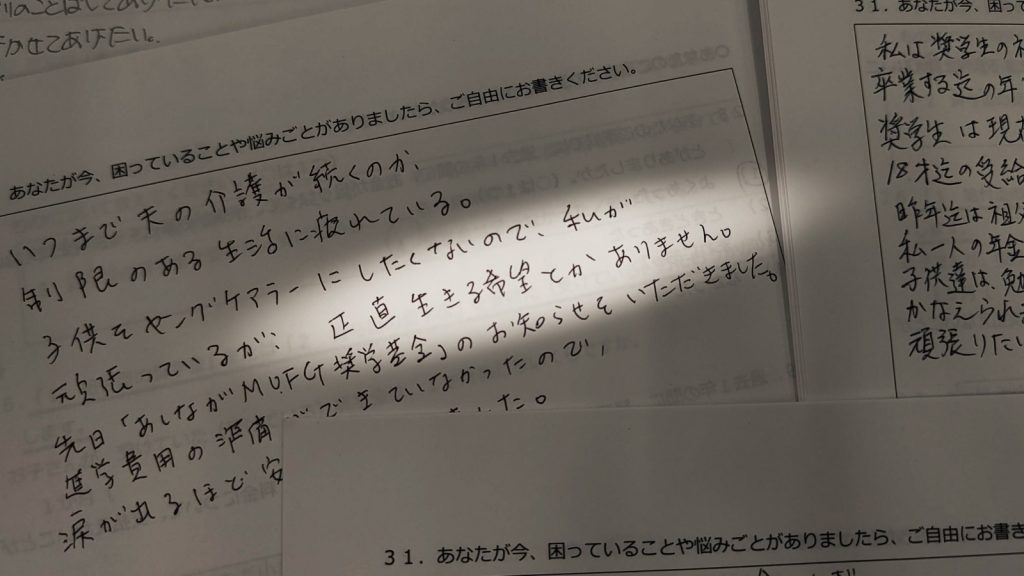 かせてあげたい。
あなたが今、困っていることや悩みごとがありましたら、ご自由にお書きください。
いつまで夫の介護が続くのか、
制限のある生活に疲れている。
子供をヤングケアラーにしたくないので、私が
頑張っているが、正直生きる希望とかありません。
先日「あしながMUFG奨学基金」のお知らせをいただきました。
進学費用の準備ができていなかったので、
涙が出るほど安
した。
31．あなたが今、困っ
私は奨学生の祖
卒業する迄の年
奨学生は現在
18才迄の受給
昨年迄は祖父
私一人の年金
子供達は、勉
かなえられ
頑張りたい
31．あなたが今、困っていることや悩みごとがありましたら、ご自由にお書き